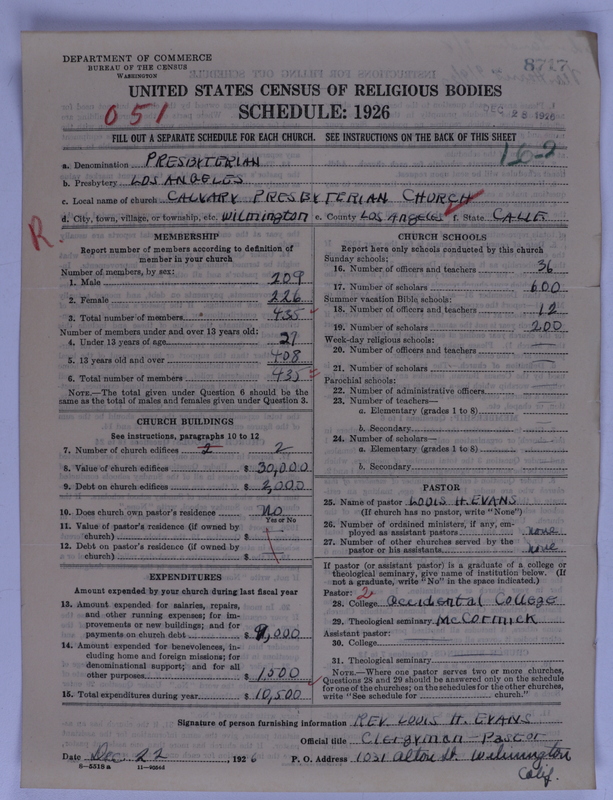 DEPARTMENT OF COMMERCE
BUREAU OF THE CENSUS
WASHINGTON
8727
UNITED STATES CENSUS OF RELIGIOUS BODIES
051
SCHEDULE: 1926
DEC 28 1926
FILL OUT A SEPARATE SCHEDULE FOR EACH CHURCH. SEE INSTRUCTIONS ON THE BACK OF THIS SHEET
16-2
a. Denomination PRESBYTERIAN
b. Presbytery LOS ANGELES
c. Local name of church CALVARY PRESBYTERIAN CHURCH
d. City, town, village, or township, etc. Wilmington e. County LOS ANGELES f. State CALIF
R.
MEMBERSHIP
Report number of members according to definition of
member in your church
Number of members, by sex:
1. Male 209
2. Female 226
3. Total number of members 435
Number of members under and over 13 years old:
4. Under 13 years of age 27
5. 13 years old and over 408
6. Total number of members 435
NOTE.—The total given under Question 6 should be the
same as the total of males and females given under Question 3.
CHURCH BUILDINGS
See instructions, paragraphs 10 to 12
7. Number of church edifices 2 2
8. Value of church edifices $ 30,000
9. Debt on church edifices $ 2,000
10. Does church own pastor's residence no
Yes or No
11. Value of pastor's residence (if owned by
church) $
12. Debt on pastor's residence (if owned by
church) $
EXPENDITURES
Amount expended by your church during last fiscal year
13. Amount expended for salaries, repairs,
and other running expenses; for im-
provements or new buildings; and for
payments on church debt $ 9,000
14. Amount expended for benevolences, in-
cluding home and foreign missions; for
denominational support; and for all
other purposes $ 1,500
15. Total expenditures during year $ 10,500
CHURCH SCHOOLS
Report here only schools conducted by this church
Sunday schools:
16. Number of officers and teachers 36
17. Number of scholars 600
Summer vacation Bible schools:
18. Number of officers and teachers 12
19. Number of scholars 200
Week-day religious schools:
20. Number of officers and teachers —
21. Number of scholars —
Parochial schools:
22. Number of administrative officers —
23. Number of teachers—
a. Elementary (grades 1 to 8) —
b. Secondary —
24. Number of scholars—
a. Elementary (grades 1 to 8) —
b. Secondary —
PASTOR
25. Name of pastor LOUIS H. EVANS
(If church has no pastor, write "None")
26. Number of ordained ministers, if any, em-
ployed as assistant pastors none
27. Number of other churches served by the
pastor or his assistants none
If pastor (or assistant pastor) is a graduate of a college or
theological seminary, give name of institution below. (If
not a graduate, write "No" in the space indicated.)
Pastor: 2
28. College Occidental College
29. Theological seminary McCormick
Assistant pastor:
30. College
31. Theological seminary
NOTE.—Where one pastor serves two or more churches,
Questions 28 and 29 should be answered only on the schedule
for one of the churches; on the schedules for the other churches,
write "See schedule for church.
Signature of person furnishing information REV. LOUIS H. EVANS
Official title Clergyman - Pastor
Date Dec. 22, 1926 P. O. Address 1031 Alton St. Wilmington
Calif.
8—5518 a